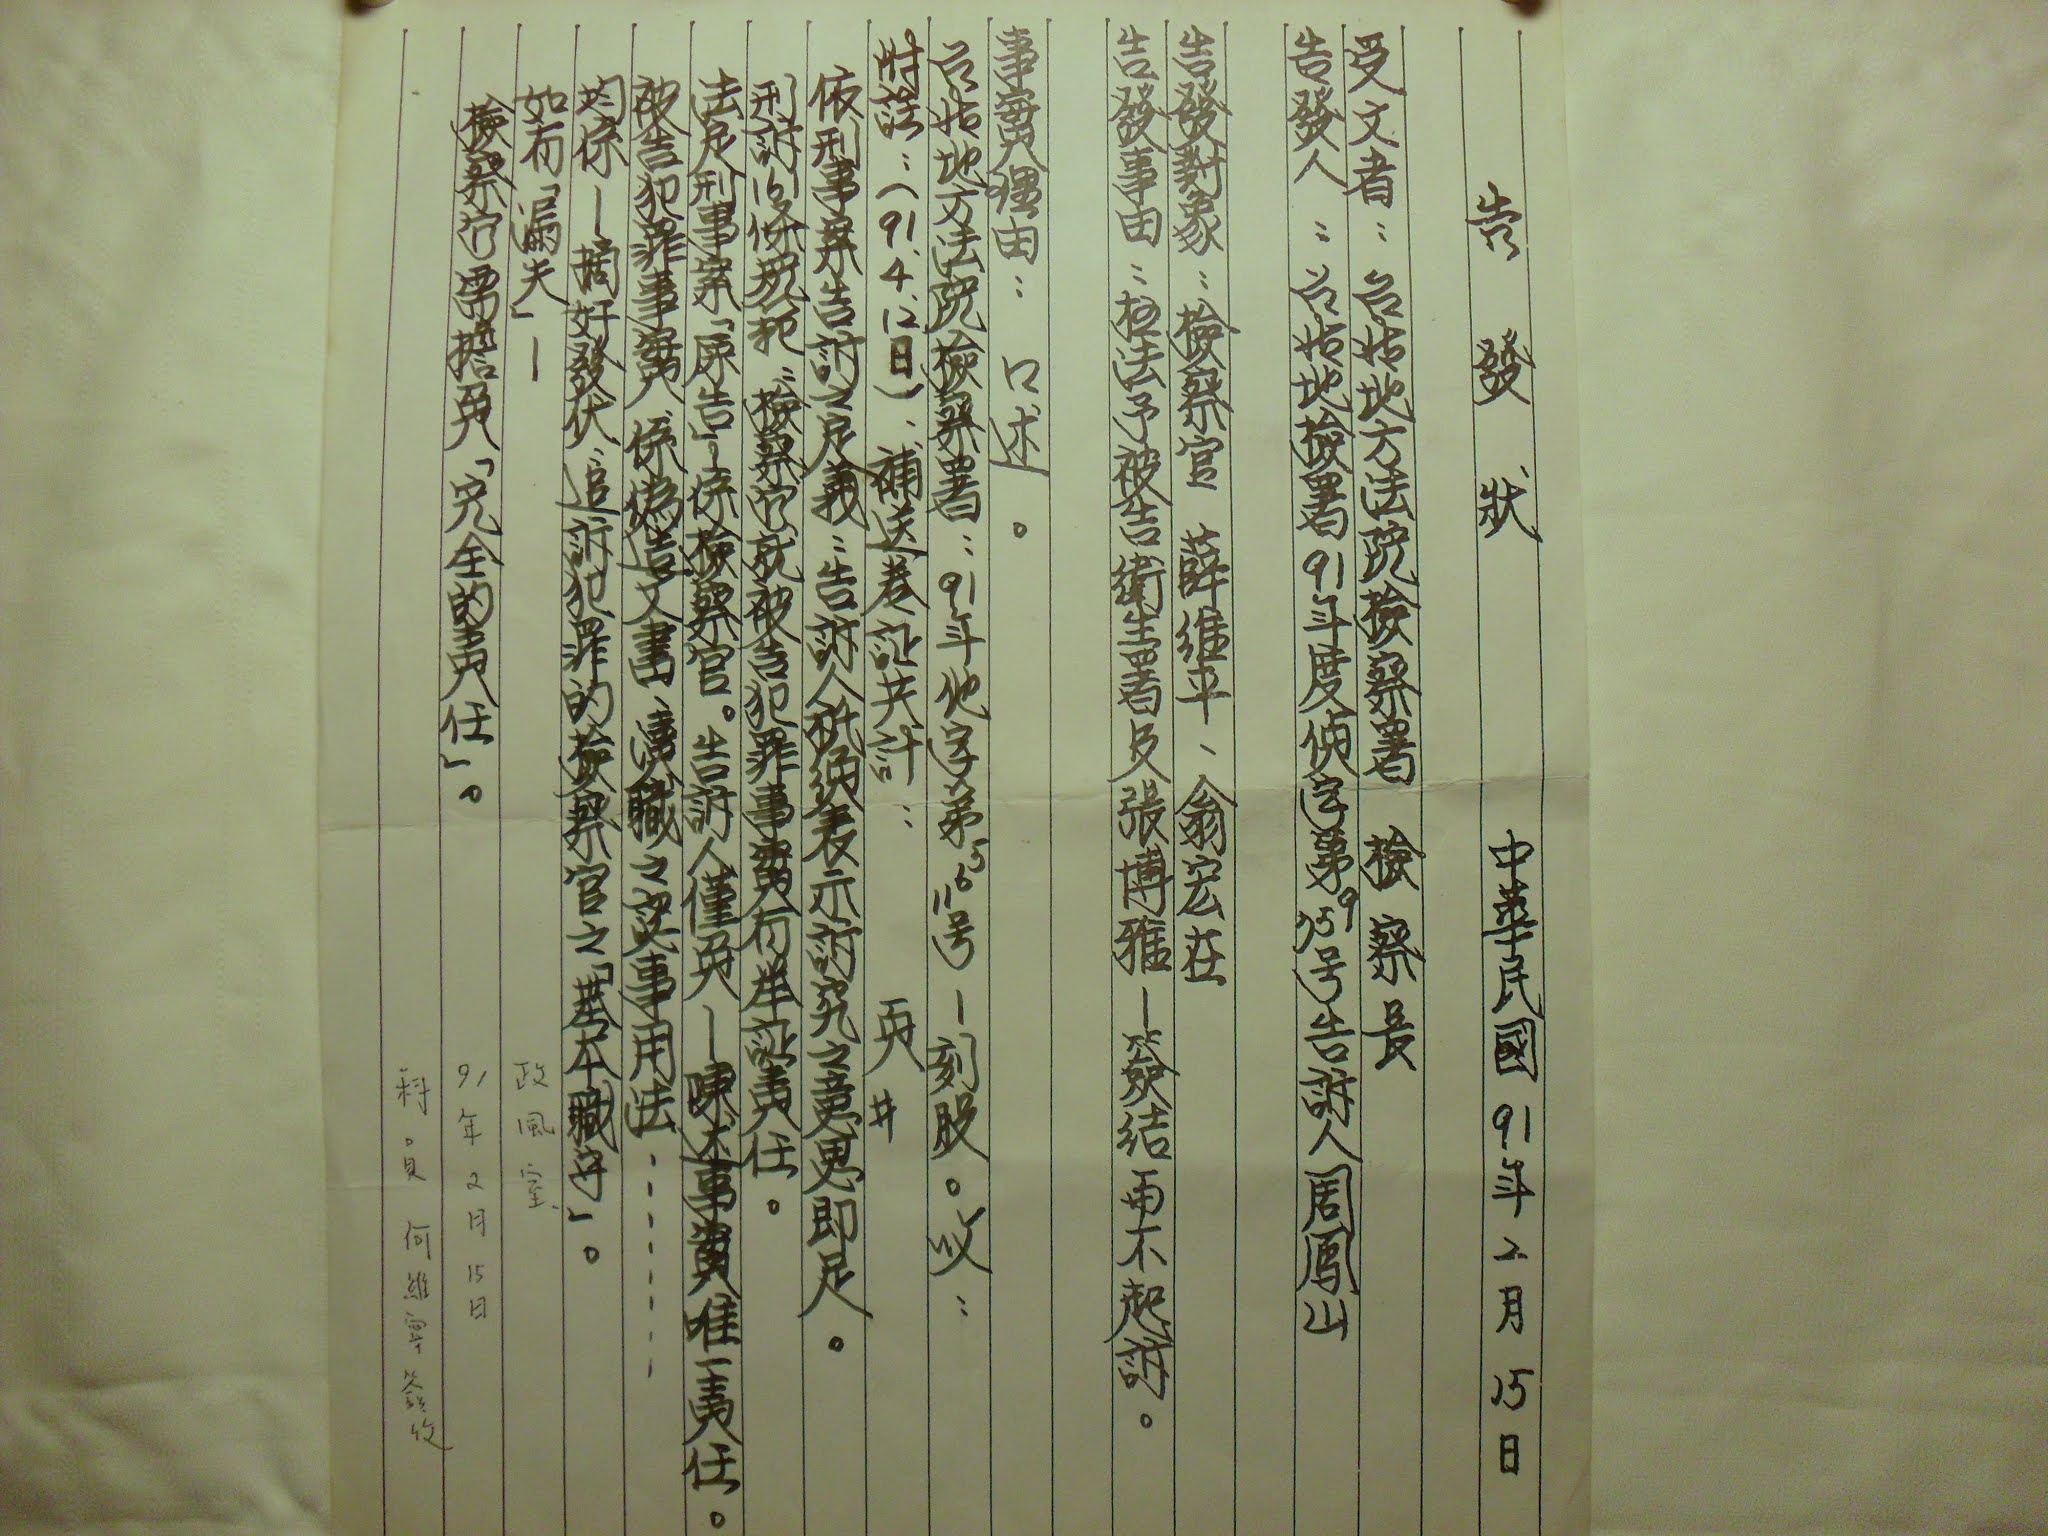 告發狀　中華民國91年2月15日
受文者：台北地方法院檢察署　檢察長
告發人：台北地檢署91年度偵字第959號告訴人周鳳山
告發對象：檢察官　薛維平、翁宏在
告發事由：枉法予被告衛生署及張博雅—簽結而不起訴。
事實理由：口述。
台北地方法院檢察署：91年他字第1165号—刻股。收：
附註：（91.4.12日）、補送卷証共計：　冊#
依刑事案告訴之足義：告訴人祇須表示訴究之意思即足。
刑訴161條規範：檢察官就被告犯罪事實有舉証責任。
法定刑事案「原告」—係檢察官。告訴人僅再—陳述事實唯一責任。
被告犯罪事實、係偽造文書、瀆職之認事用法………
均係—摘奸發伏、追訴犯罪的檢察官之「基本職守」。
如有「漏失」—
檢察官需擔負「完全的責任」。
政風室
91年2月15日
科員　何維　簽收